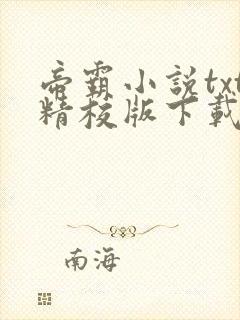 帝霸小説txt
精校版下載
南海